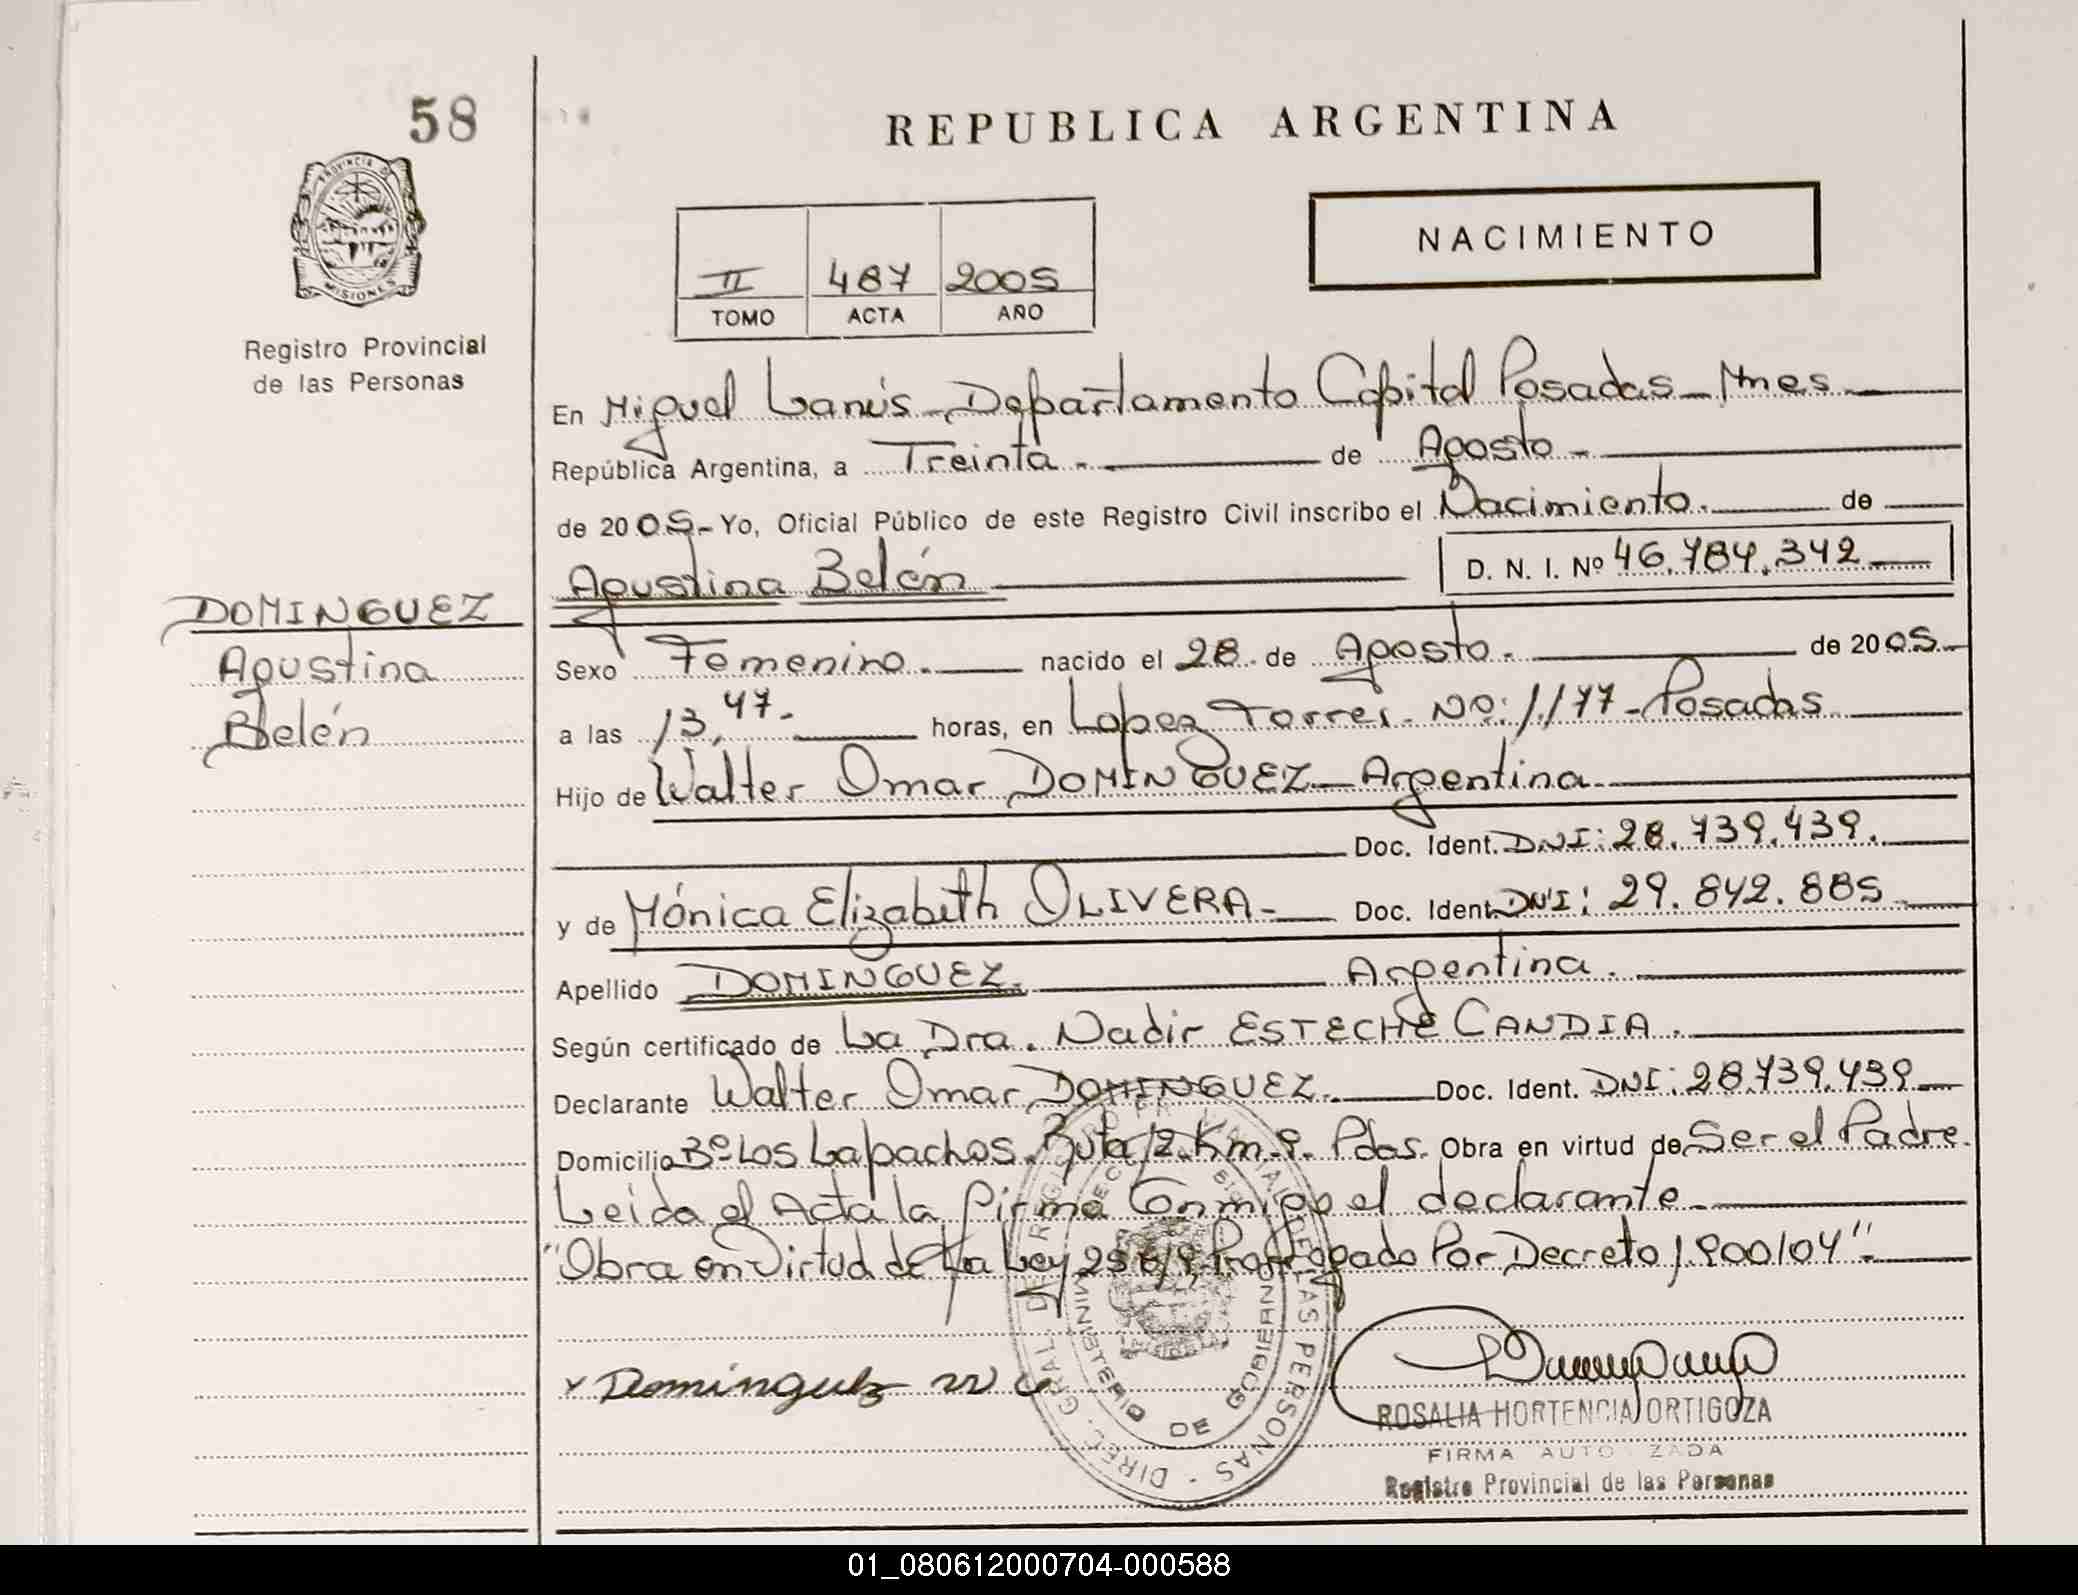 58
REPUBLICA ARGENTINA
PROVINCIA DE
MISIONES
Registro Provincial
de las Personas
NACIMIENTO
II 487 2005
TOMO ACTA AÑO
En Miguel Lanús - Departamento Capital Posadas - Mnes.
República Argentina, a Treinta.- de Agosto.-
de 2005.- Yo, Oficial Público de este Registro Civil inscribo el Nacimiento. de
Agustina Belén D. N. I. Nº 46.784.342
DOMINGUEZ
Agustina
Belén
Sexo Femenino. nacido el 28 de Agosto. de 2005.-
a las 13,47- horas, en Lopez Torres. Nº: 1177- Posadas
Hijo de Walter Omar DOMINGUEZ - Argentina
Doc. Ident. DNI: 28.739.439.
y de Mónica Elizabeth OLIVERA- Doc. Ident. DNI: 29.842.885
Apellido DOMINGUEZ. Argentina.
Según certificado de La Dra. Nadir ESTECHE CANDIA.
Declarante Walter Omar DOMINGUEZ. Doc. Ident. DNI: 28.739.439
Domicilio Bº Los Lapachos. Ruta 12. Km. 9. Pdas. Obra en virtud de Ser el Padre.
Leida el Acta la firma Conmigo el declarante.
"Obra en Virtud de La Ley 25819, Prorrogado Por Decreto 1.900/04"
Dominguez W O
DIREC. GRAL. DEL REGISTRO PROVINCIAL DE LAS PERSONAS
MINISTERIO DE GOBIERNO
ROSALIA HORTENCIA ORTIGOZA
FIRMA AUTORIZADA
Registro Provincial de las Personas
01_080612000704-000588